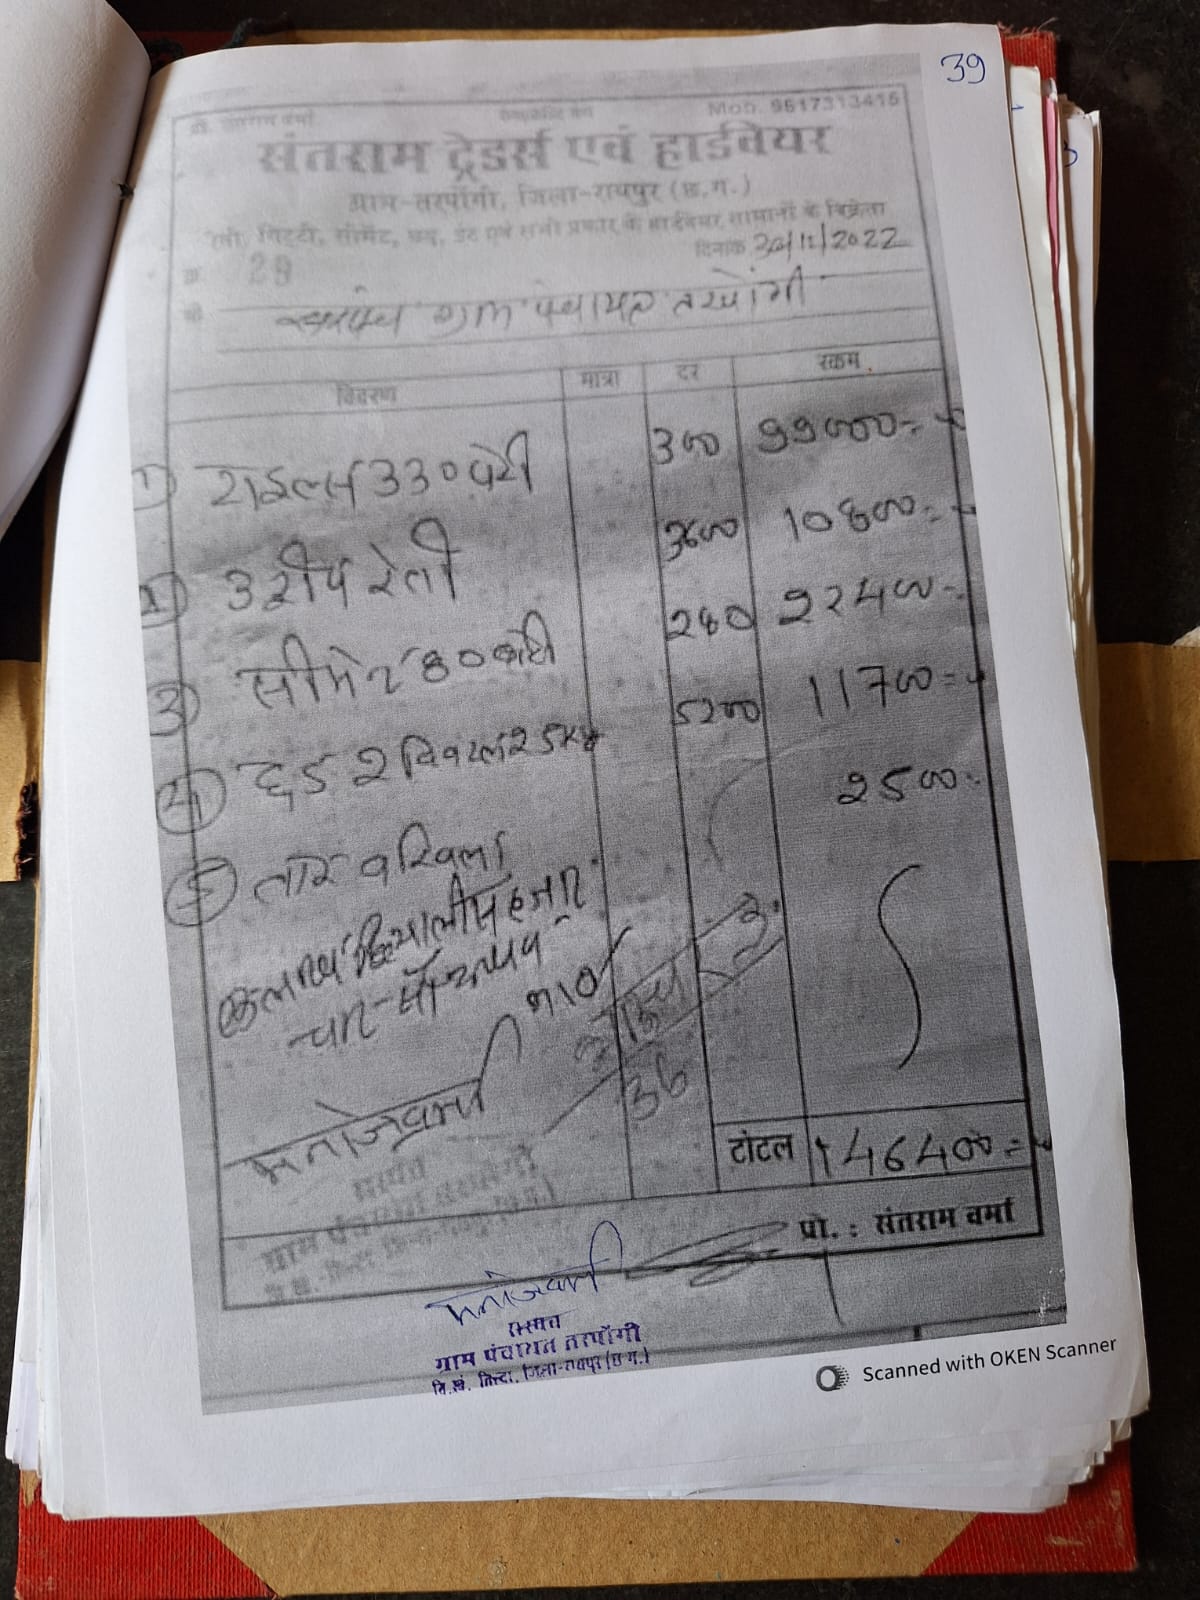 39
प्रो. संतराम वर्मा
Mob. 9617313415
संतराम ट्रेडर्स एवं हार्डवेयर
ग्राम-तरपोंगी, जिला-रायपुर (छ.ग.)
रेती, गिट्टी, सीमेंट, छड़, ईंट एवं सभी प्रकार के हार्डवेयर सामानों के विक्रेता
क्र. 29
दिनांक 30/12/2022
सरपंच ग्राम पंचायत तरपोंगी
विवरण मात्रा दर रकम
1) टाईल्स 330 पेटी 300 99000=
2) 3 टीप रेती 3600 10800=
3) सीमेंट 80 बोरी 280 22400=
4) छड़ 2 क्विंटल 25 kg 5200 11700=
5) तार व खिला 2500=
चार सौ रूपये मात्र
मनोज वर्मा
36
सरपंच
ग्राम पंचायत तरपोंगी
टोटल 146400=
प्रो. : संतराम वर्मा
मनोज वर्मा
सरपंच
ग्राम पंचायत तरपोंगी
वि.खं. तिल्दा, जिला-रायपुर (छ.ग.)
Scanned with OKEN Scanner